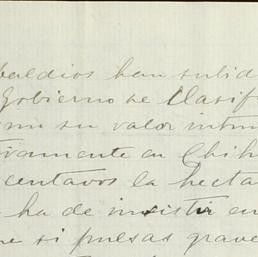 baldios han subid
Gobierno se Clasif
su valor intrin
vamente en Chih
centavos la hecta
ha de insistir en
si pulsas grave